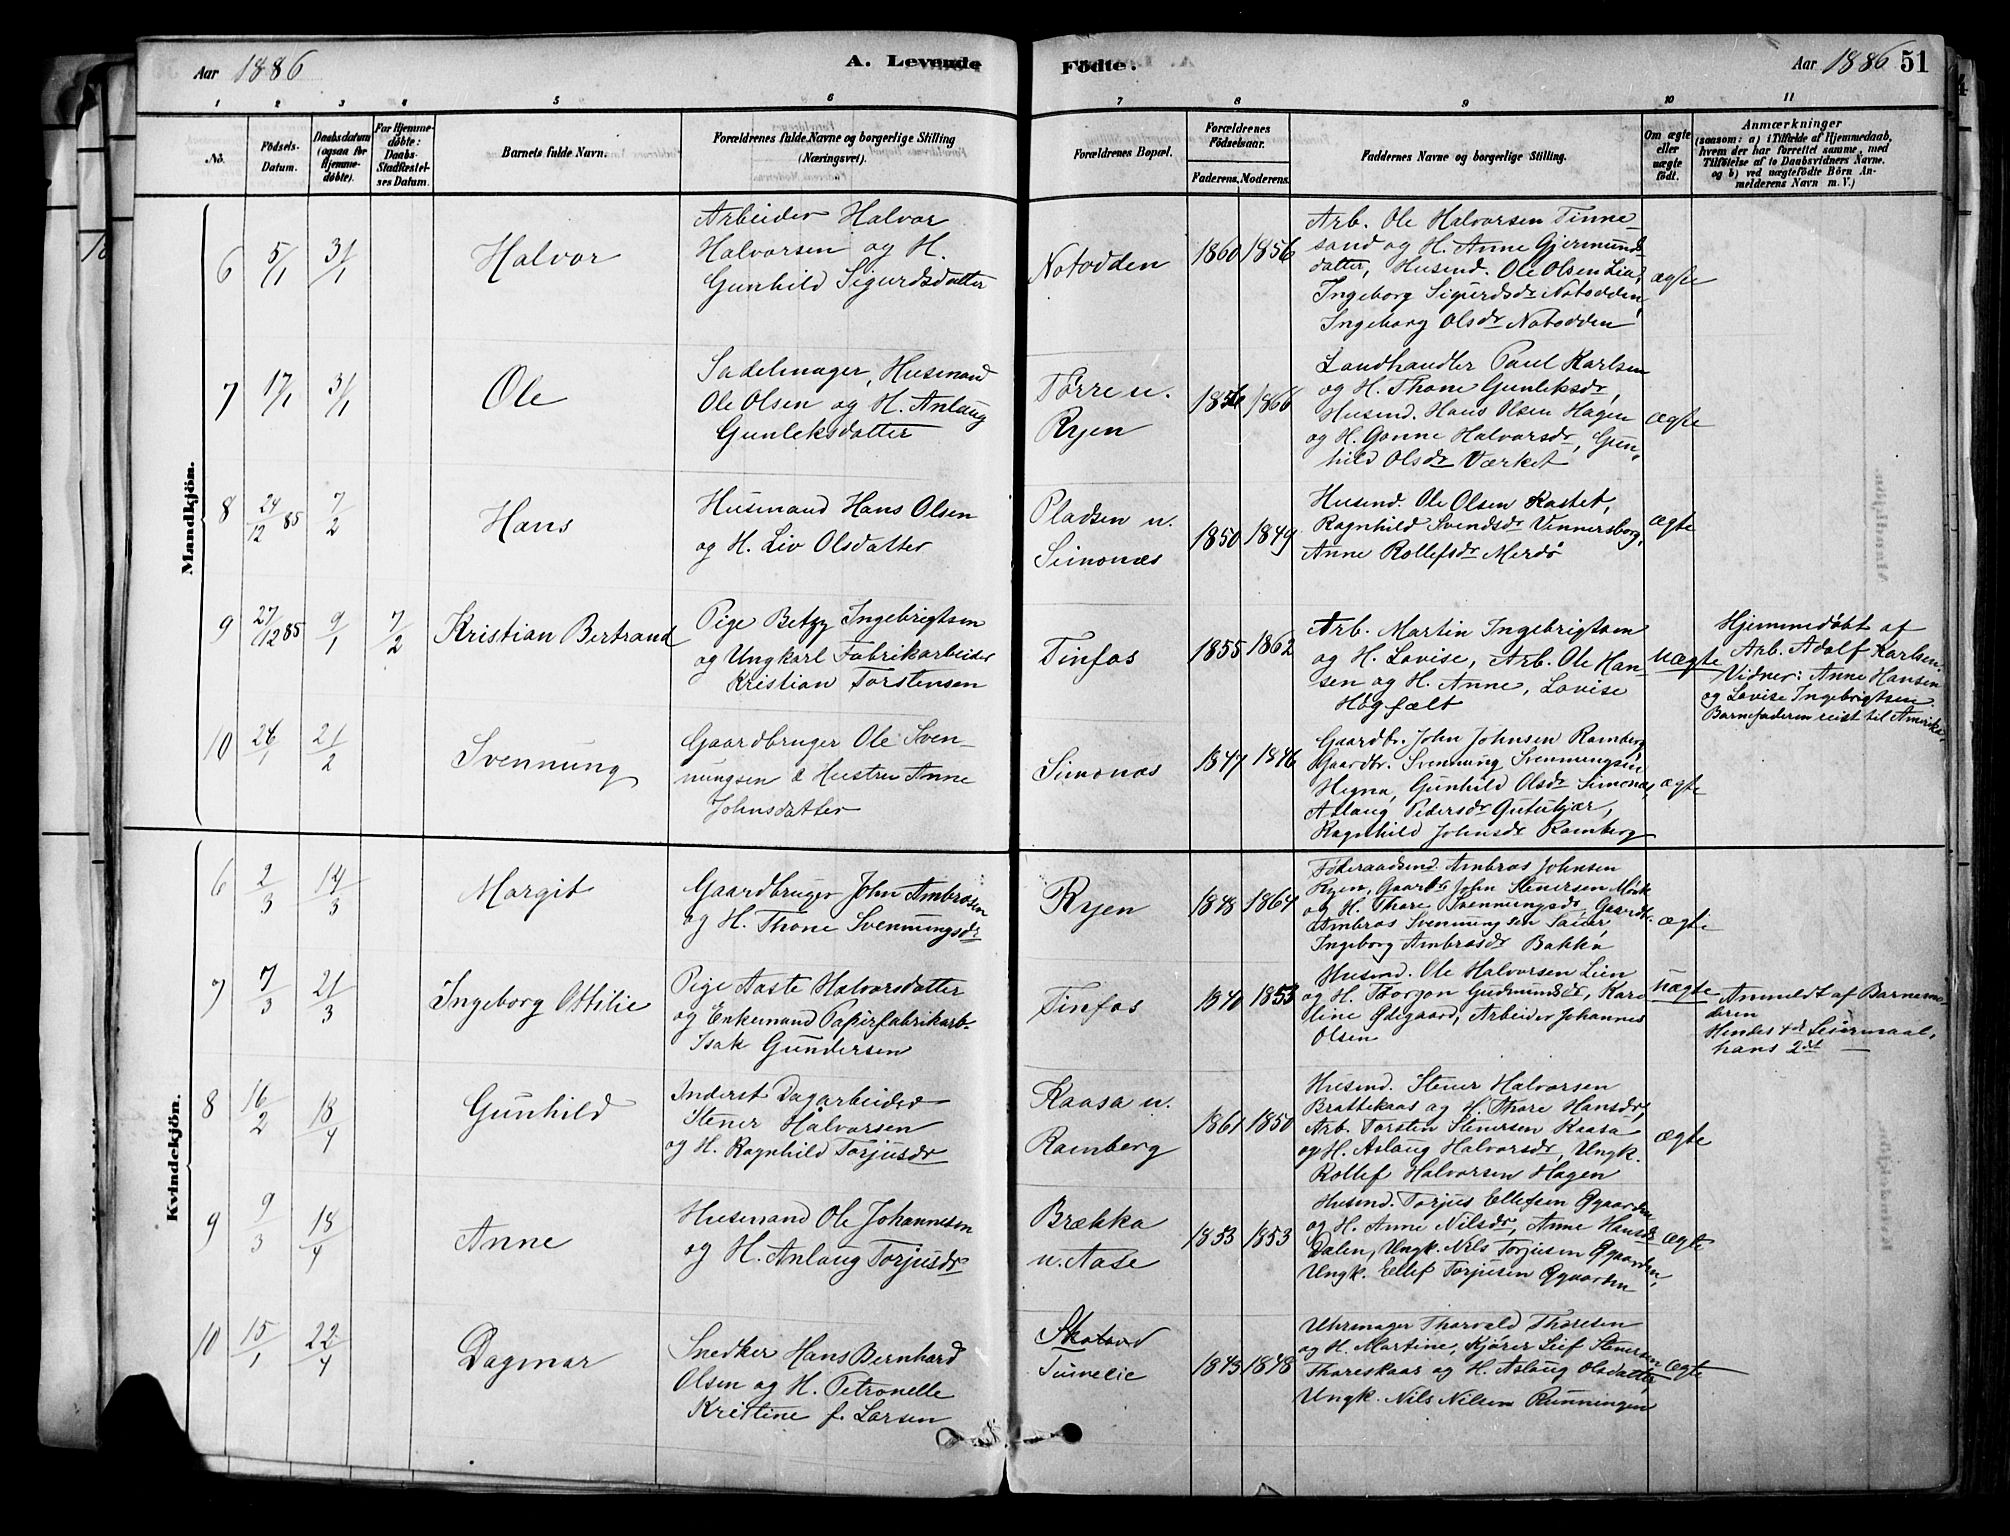 Aar 1886
A. Levende
Födte.
Aar 1886
51
1 2 3 4 5 6 7 8 9 10 11
No.
Födsels-
Datum.
Daabsdatum
(ogsaa for
Hjemme-
döbte).
For Hjemme-
döbte:
Daabs-
Stadfæstel-
ses Datum.
Barnets fulde Navn.
Forældrenes fulde Navne og borgerlige Stilling
(Næringsvei).
Forældrenes Bopæl.
Forældrenes
Födselsaar.
Faderens. Moderens.
Faddernes Navne og borgerlige Stilling.
Om ægte
eller
uægte
födt.
Anmærkninger
(saasom: a) i Tilfælde af Hjemmedaab,
hvem der har forrettet samme, med
Tilföielse af to Daabsvidners Navne.
og b) ved uægtefödte Börn An-
melderens Navn m. V.)
Mandkjön.
6 5/1 31/1
Halvor
Arbeider Halvor
Halvorsen og H.
Gunhild Sigurdsdatter
Notodden
1860 1856
Arb. Ole Halvorsen Tinne-
sand og H. Anne Gjermunds
datter, Husmd. Ole Olsen Lia,
Ingeborg Sigurdsdr Notodden,
Ingeborg Olsdr Notodden
ægte
7 17/1 31/1
Ole
Sadelmager, Husmand
Ole Olsen og H. Anlaug
Gunleksdatter
Tørre u.
Ryen
1856 1866
Landhandler Paul Karlsen
og H. Thone Gunleksdr,
Husmd. Hans Olsen Hagen
og H. Gonne Halvorsdr, Gun-
hild Olsdr Værket
ægte
8 24/12 85 7/2
Hans
Husmand Hans Olsen
og H. Liv Olsdatter
Pladsen u.
Simonæs
1850 1849
Husmd. Ole Olsen Kastet,
Ragnhild Svendsdr Vinnersborg,
Anne Rollefsdr Merdø
ægte
9 27/12 85 9/1 7/2
Kristian Bertrand
Pige Betzy Ingebrigtsen
og Ungkarl Fabrikarbeider
Kristian Torstensen
Tinfos
1855 1862
Arb. Martin Ingebrigtsen
og H. Lovise, Arb. Ole Han-
sen og H. Anne, Lovise
Høgfælt
uægte
Hjemmedøbt af
Arb. Adolf Karlsen.
Vidner: Anne Hansen
og Lovise Ingebrigtsen.
Barnefaderen reist til Amerika.
10 24/1 21/2
Svennung
Gaardbruger Ole Sven-
nungsen & Hustru Anne
Johnsdatter
Simonæs
1847 1846
Gaardbr. John Johnsen Ramberg,
Gaardbr. Svennung Svennungsen
Hegna, Gunhild Olsdr Simonæs,
Aslaug Pedersdr
Ragnhild Johnsdr Ramberg
ægte
Kvindekjön.
6 2/3 14/3
Margit
Gaardbruger John Ambrosen
og H. Thone Svennungsdr
Ryen
1848 1864
Føderaadsmd. Ambros Johnsen
Ryen, Gaardbr John Stenersen
og H. Thore Svennungsdr, Gaardb.
Ambros Svennungsen
Ingeborg Ambrosdr Bakka
ægte
7 7/3 21/3
Ingeborg Ottilie
Pige Aaste Halvorsdatter
og Enkemand Papirfabrikarb.
Isak Gundersen
Tinfos
1840 1853
Husmd. Ole Halvorsen Lien
og H. Torjon Gudmundsdr, Karo
line Ødegaard, Arbeider Johannes
Olsen
uægte
Anmeldt af Barnemo-
deren
Hendes 4de Leiermaal,
hans 2det —
8 16/2 18/4
Gunhild
Inderst Dagarbeider
Stener Halvorsen
og H. Ragnhild Torjusdr
Kaasa u.
Ramberg
1861 1850
Husmd. Stener Halvorsen
Brattekaas og H. Thore Hansdr,
Arb. Torsten Stenersen Kaasa
og H. Aslaug Halvorsdr, Ungk.
Rollef Halvorsen Hagen
ægte
9 9/3 18/4
Anne
Husmand Ole Johannesen
og H. Anlaug Torjusdr
Brækka
u. Aase
1853 1853
Husmd. Torjus Ellefsen Øygaarden
og H. Anne Nilsdr, Anne Hansdr
Dalen, Ungk. Nils Torjusen Øygaarden,
Ungk. Ellef Torjusen Øygaarden
ægte
10 15/1 22/4
Dagmar
Snedker Hans Bernhard
Olsen og H. Petronelle
Kristine f. Larsen
1843 1848
Uhrmager Thorvald Thoresen
og H. Martine, Kjører Leif Stenersen
Thoreskaas og H. Aslaug Olsdatter,
Ungk. Nils Nilsen Runningen
ægte